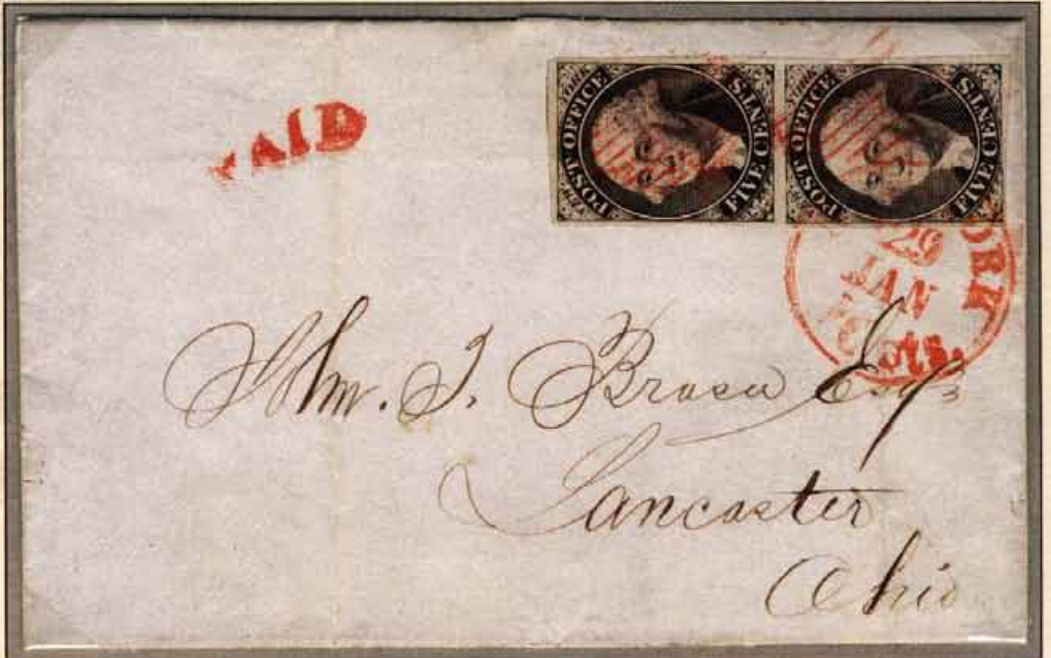 PAID
POST OFFICE
FIVE CENTS
POST OFFICE
FIVE CENTS
29
JAN
cts.
Wm. J. Brown Esqr
Lancaster
Ohio